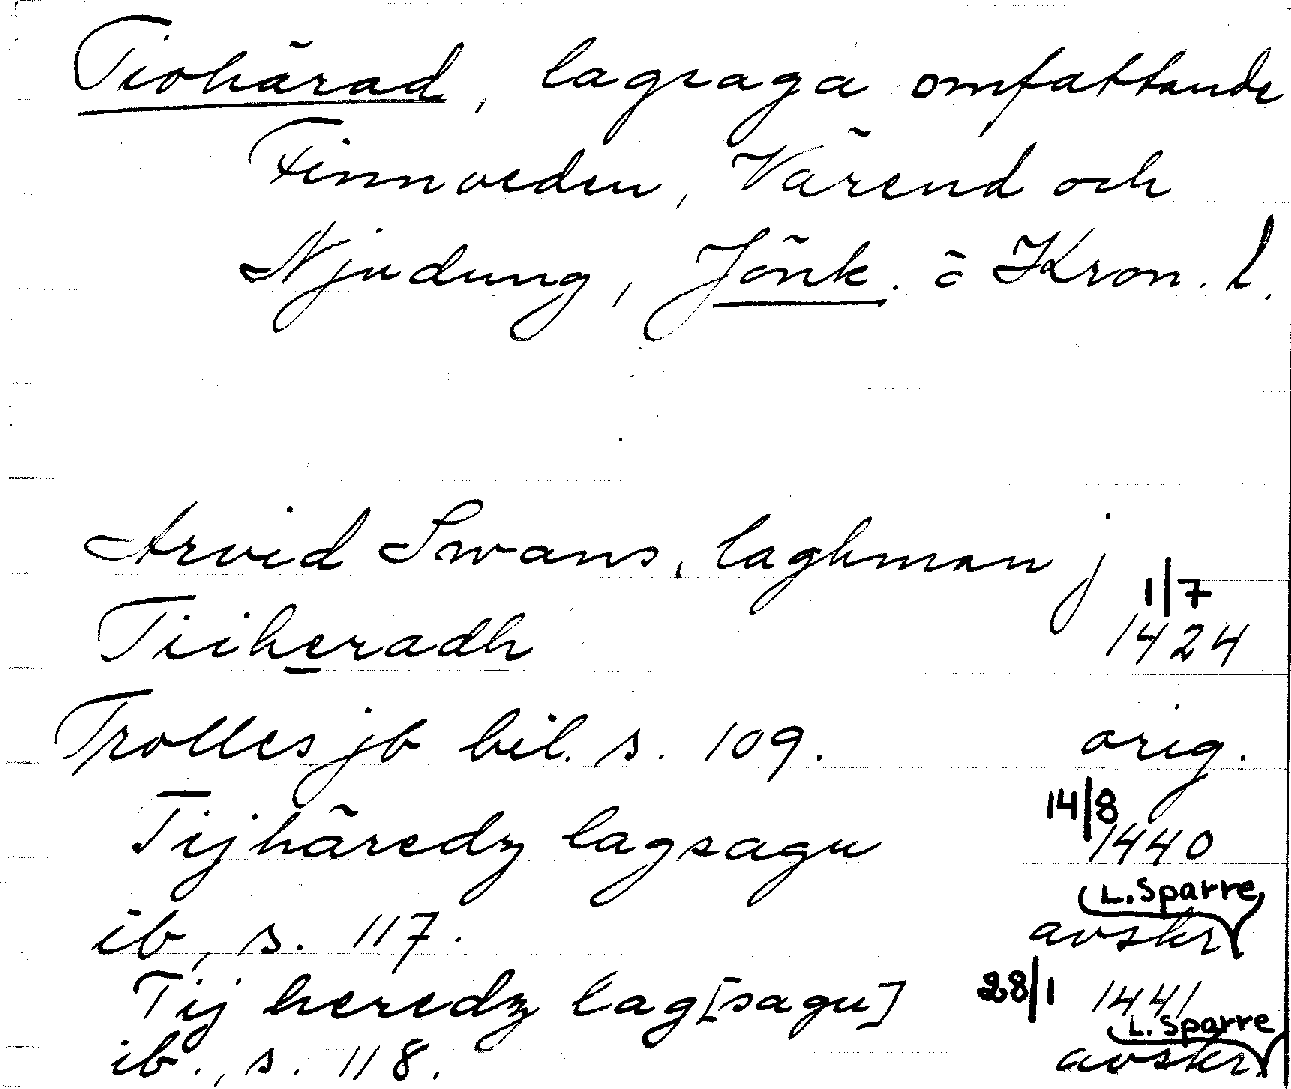 Tiohärad, lagsaga omfattande
Finnveden, Värend och
Njudung, Jönk. o Kron. l.
Arvid Swans, laghman j
1/7
Tiiheradh 1424
Trolles jb bil. s. 109. orig.
Tijhäredz lagsagu 14/8 1440
L. Sparre
ib., s. 117. avskr.
Tij heredz lag[sagu] 28/1 1441
L. Sparre
ib., s. 118. avskr.